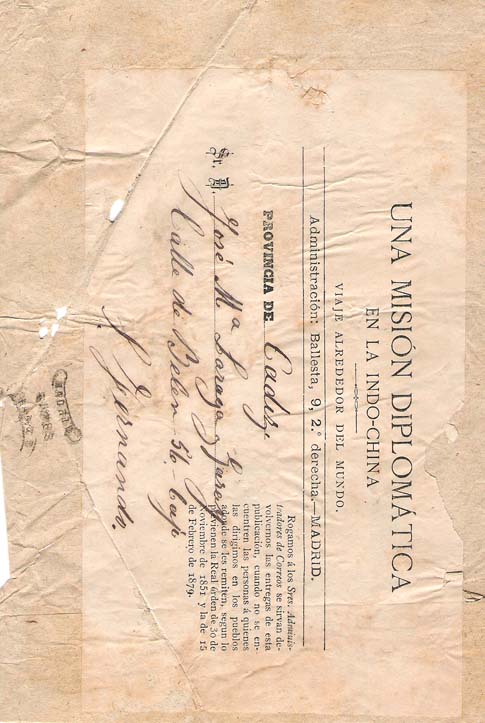 UNA MISIÓN DIPLOMÁTICA
EN LA INDO-CHINA
VIAJE ALREDEDOR DEL MUNDO.
Administración: Ballesta, 9, 2.º derecha.—MADRID.
PROVINCIA DE Cadiz.
Sr. D. José Mª Loraga y Garay
Calle de Belen 54 bajo
S. Fernando
Rogamos á los Sres. Adminis-
tradores de Correos se sirvan de-
volvernos las entregas de esta
publicación, cuando no se en-
cuentren las personas á quienes
las dirigimos en los pueblos
adonde se les remiten, segun lo
previenen la Real órden de 30 de
noviembre de 1851 y la de 15
de Febrero de 1879.